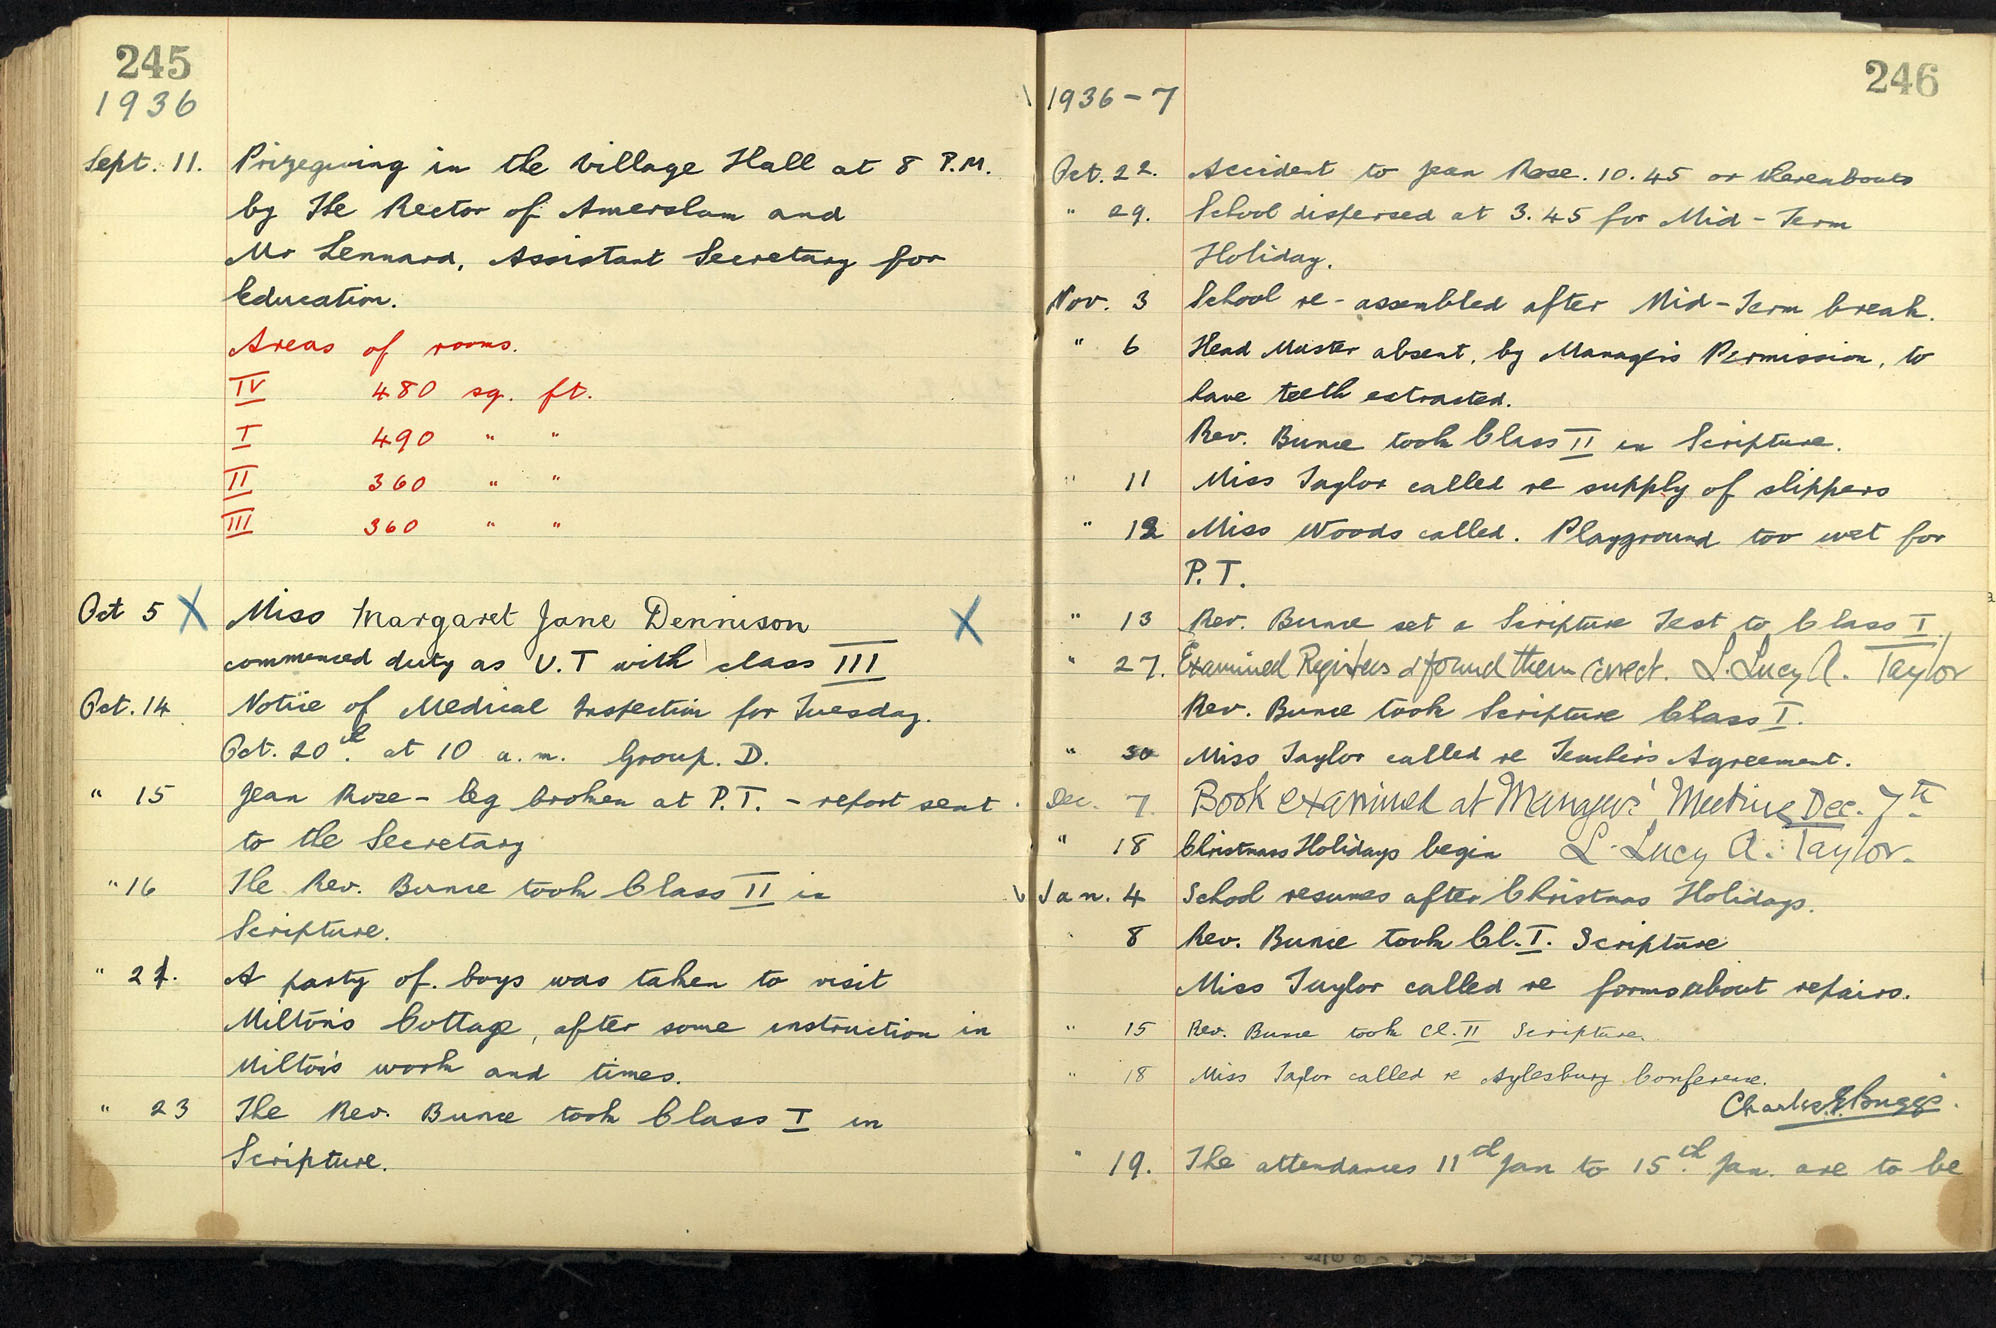 245
1936
Sept. 11. Prizegiving in the Village Hall at 8 P.M.
by The Rector of Amersham and
Mr Lennard, Assistant Secretary for
Education.
Areas of rooms.
IV 480 sq. ft.
I 490 " "
II 360 " "
III 360 " "
Oct 5 X Miss Margaret Jane Dennison X
commenced duty as U.T with class III
Oct. 14 Notice of Medical Inspection for Tuesday.
Oct. 20th. at 10 a.m. Group. D.
" 15 Jean Rose - leg broken at P.T. - report sent
to the Secretary
" 16 The Rev. Bunce took Class II in
Scripture.
" 21. A party of boys was taken to visit
Milton's Cottage, after some instruction in
Milton's work and times.
" 23 The Rev. Bunce took Class I in
Scripture.
246
1936-7
Oct. 22. Accident to Jean Rose. 10.45 or thereabouts
" 29. School dispersed at 3.45 for Mid-Term
Holiday.
Nov. 3 School re-assembled after Mid-Term break.
" 6 Head Master absent, by Manager's Permission, to
have teeth extracted.
Rev. Bunce took Class II in Scripture.
" 11 Miss Taylor called re supply of slippers
" 12 Miss Woods called. Playground too wet for
P.T.
" 13 Rev. Bunce set a Scripture Test to Class I.
" 27. Examined Registers & found them correct. L. Lucy A. Taylor
Rev. Bunce took Scripture Class I.
" 30 Miss Taylor called re Teacher's Agreement.
Dec. 7. Book examined at Managers' Meeting Dec. 7th
" 18 Christmas Holidays begin L. Lucy A. Taylor.
Jan. 4 School resumes after Christmas Holidays.
8 Rev. Bunce took Cl. I. Scripture
Miss Taylor called re forms about repairs.
" 15 Rev. Bunce took Cl. II Scripture.
" 18 Miss Taylor called re Aylesbury Conference.
Charles E Buggs.
" 19. The attendances 11th Jan to 15th. Jan. are to be